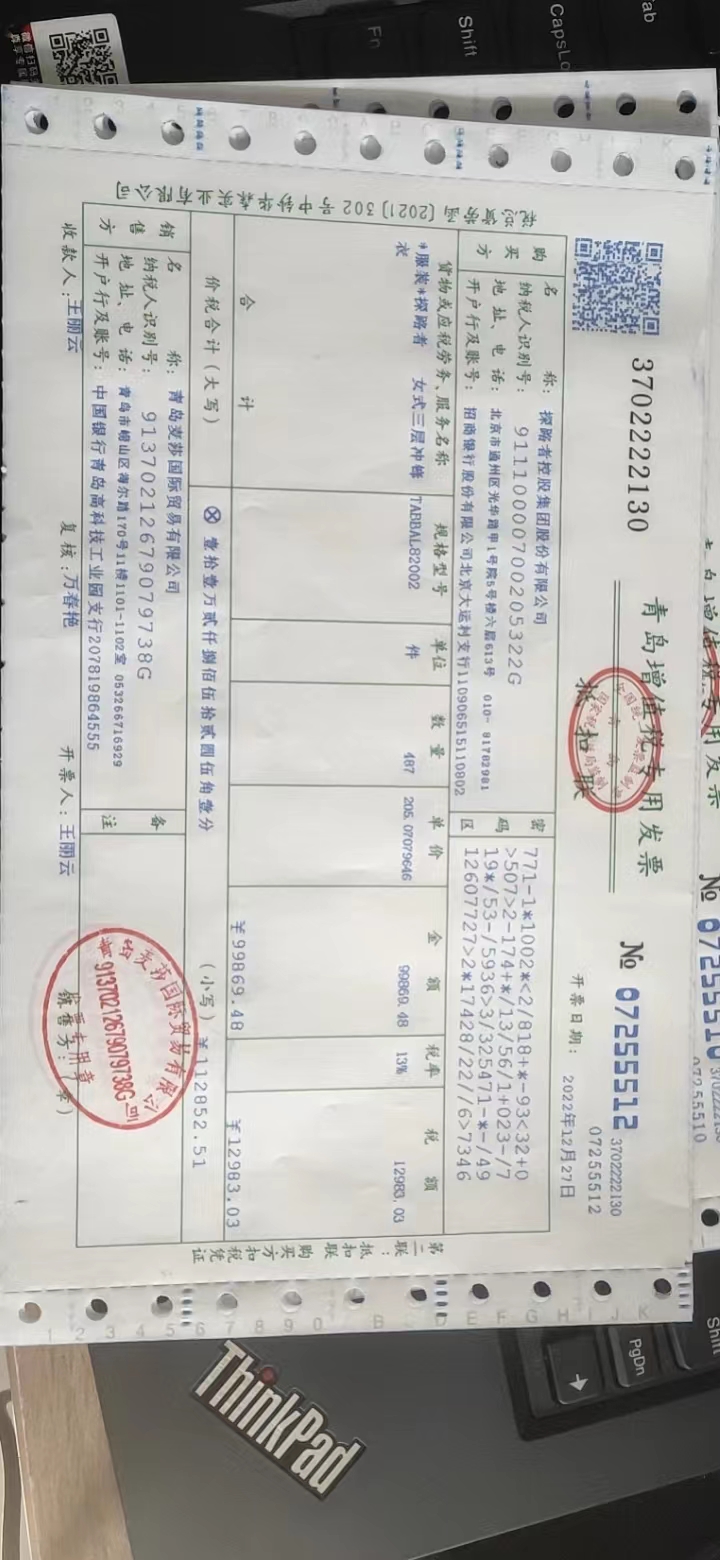 3702222130
青岛增值税专用发票
抵扣联
№ 07255512
3702222130
07255512
开票日期: 2022年12月27日
税总货劳函〔2021〕302号
购买方
名 称: 探路者控股集团股份有限公司
纳税人识别号: 91110000700205322G
地 址、电 话: 北京市通州区光华路甲1号院5号楼六层613号 010-81782981
开户行及账号: 招商银行股份有限公司北京大运村支行110906515110802
密码区
771-1*1002*<2/818+*-93<32+0
>507>2-174+*/13/56/1+023-/7
19*/53-/5936>3/325471-*-/49
12607727>2*17428/22//6>7346
货物或应税劳务、服务名称 规格型号 单位 数量 单价 金额 税率 税额
*服装*探路者 女式三层冲锋衣 TABBAL82002 件 487 205.07079646 99869.48 13% 12983.03
合 计 ¥99869.48 ¥12983.03
价税合计(大写) ⊗壹拾壹万贰仟捌佰伍拾贰圆伍角壹分 (小写) ¥112852.51
销售方
名 称: 青岛麦莎国际贸易有限公司
纳税人识别号: 91370212679079738G
地 址、电 话: 青岛市崂山区海尔路170号11楼1101-1102室 053266716929
开户行及账号: 中国银行青岛高科技工业园支行207819864555
备注
收款人: 王丽云 复核: 万春艳 开票人: 王丽云 销售方:(章)
青岛麦莎国际贸易有限公司
91370212679079738G
发票专用章
第二联:抵扣联 购买方扣税凭证
№ 07255510
07255510
ThinkPad
Tab
CapsLo
Shift
Fn
PgDn
Shift